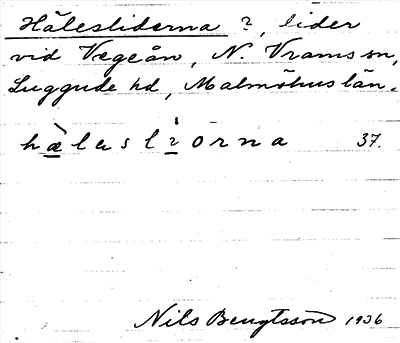 Hälesliderna ?, lider
vid Vegeån, N. Vrams sn,
Luggude hd, Malmöhus län.
hæ̀lasli̍òrna 37.
Nils Bengtsson 1936